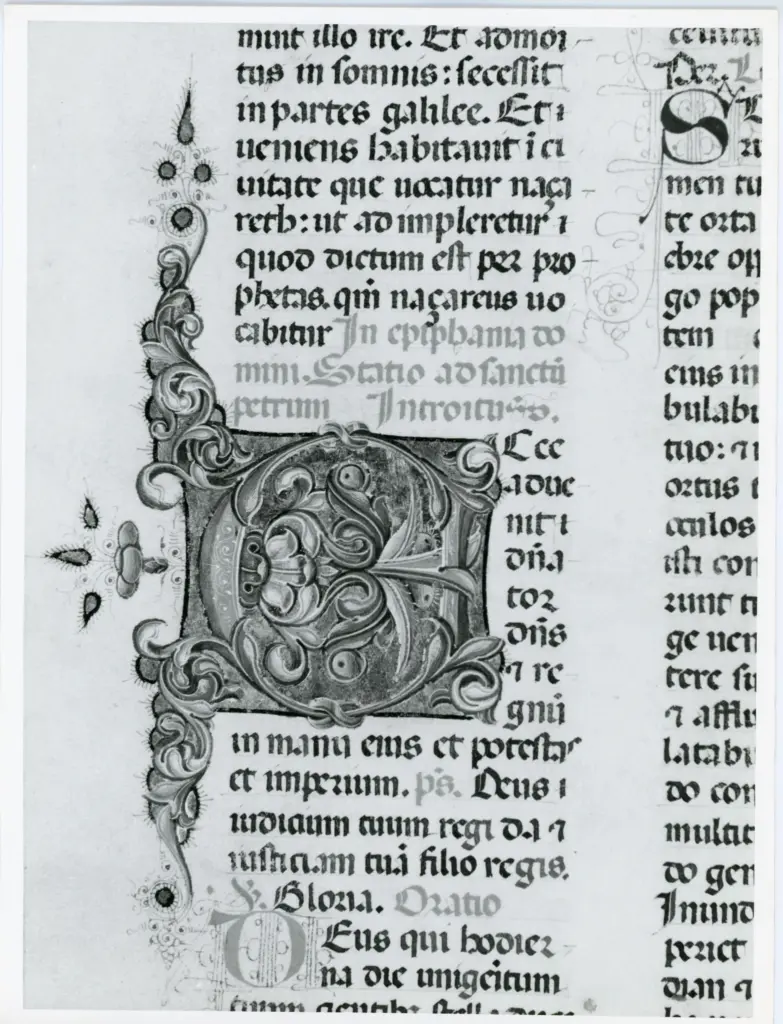 mint illo ire. Et admoi
tus in somnis: secessit
in partes galilee. Et i
ueniens habitauit i ci
uitate que uocatur naça
reth: ut ad impleretur i
quod dictum est per pro
phetas. qm̃ naçareus uo
cabitur In epiphania do
mini. Statio ad sanctũ
petrum Introitus.
Ecce
adue
nit i
dñator
dñs
⁊ re
gnũ
in manu eius et potestas
et imperium. ps. Deus i
iudicium tuum regi da ⁊
iusticiam tuã filio regis.
℣. Gloria. Oratio
Deus qui hodier
na die unigeitum
tuum gentibꝫ stella duce
Per.
S
men tu
te orta
ebre op
go pop
tem
eius in
bulabu
tuo: ⁊
ortus
oculos
isti con
runt
ge uen
tere su
⁊ afflu
latabi
do con
multit
do gen
Inund
periet
dian ⁊